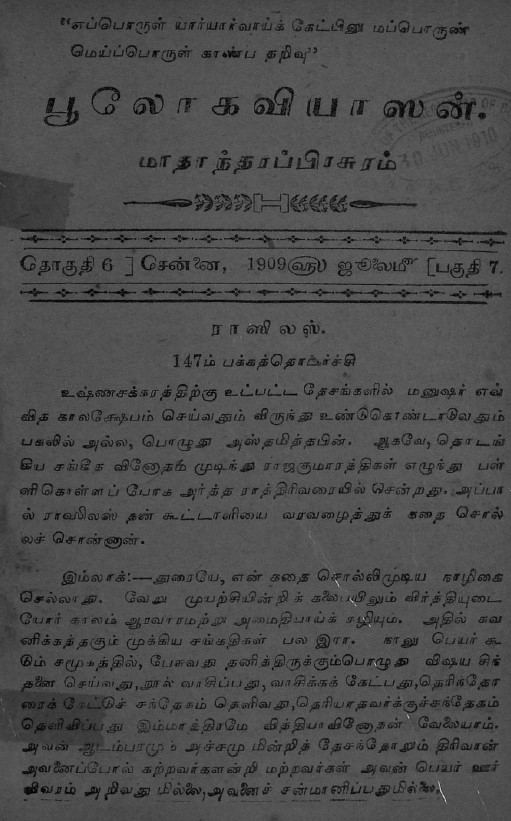 “எப்பொருள் யார்யார்வாய்க் கேட்பினு மப்பொருண்
மெய்ப்பொருள் காண்ப தறிவு”
பூலோகவியாஸன்.
மாதாந்தரப்பிரசுரம்
தொகுதி 6 ] சென்னை, 1909௵ ஜூலை௴ [பகுதி 7.
ராஸிலஸ்.
147ம் பக்கத்தொடர்ச்சி
உஷ்ணசக்கரத்திற்கு உட்பட்ட தேசங்களில் மனுஷர் எவ்
வித காலக்ஷேபம் செய்வதும் விருந்து உண்டுகொண்டாடுவதும்
பகலில் அல்ல, பொழுது அஸ்தமித்தபின். ஆகவே, தொடங்
கிய சங்கீத வினோதம் முடிந்து ராஜகுமாரத்திகள் எழுந்து பள்
ளிகொள்ளப் போக அர்த்த ராத்திரிவரையில் சென்றது. அப்பா
ல் ராஸிலஸ் தன் கூட்டாளியை வரவழைத்துக் கதை சொல்
லச் சொன்னான்.
இம்லாக்:—துரையே, என் கதை சொல்லிமுடிய நாழிகை
செல்லாது. வேறு முயற்சியின்றிக் கலையிலும் விர்த்தியுடை
யோர் காலம் ஆரவாரமற்று அமைதியாய்க் கழியும். அதில் கவ
னிக்கத்தகும் முக்கிய சங்கதிகள் பல இரா. நாலு பெயர் கூ
டும் சமூகத்தில், பேசுவது தனித்திருக்கும்பொழுது விஷய சிந்
தனை செய்வது, நூல் வாசிப்பது, வாசிக்கக் கேட்பது, தெரிந்தோ
ரைக் கேட்டுச் சந்தேகம் தெளிவது, தெரியாதவர்க்குச்சந்தேகம்
தெளிவிப்பது இம்மாத்திரமே வித்தியாவினோதன் வேலையாம்.
அவன் ஆடம்பரமும் அச்சமு மின்றித் தேசந்தோறும் திரிவான்
அவனைப்போல் கற்றவர்களன்றி மற்றவர்கள் அவன் பெயர் ஊர்
விவரம் அறிவது மில்லை, அவனைச் சன்மானிப்பதுமில்லை.